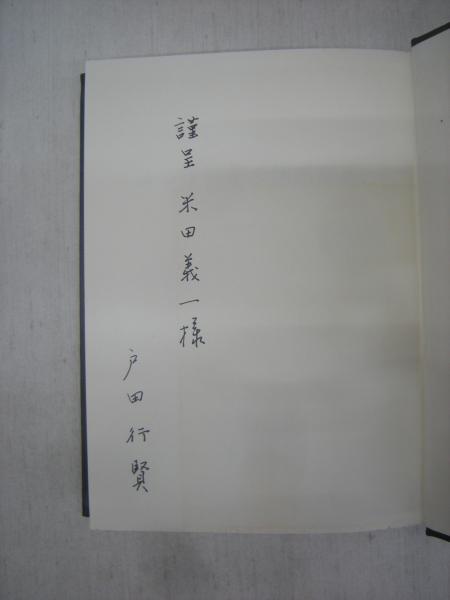 謹呈 米田義一様
戸田行賢